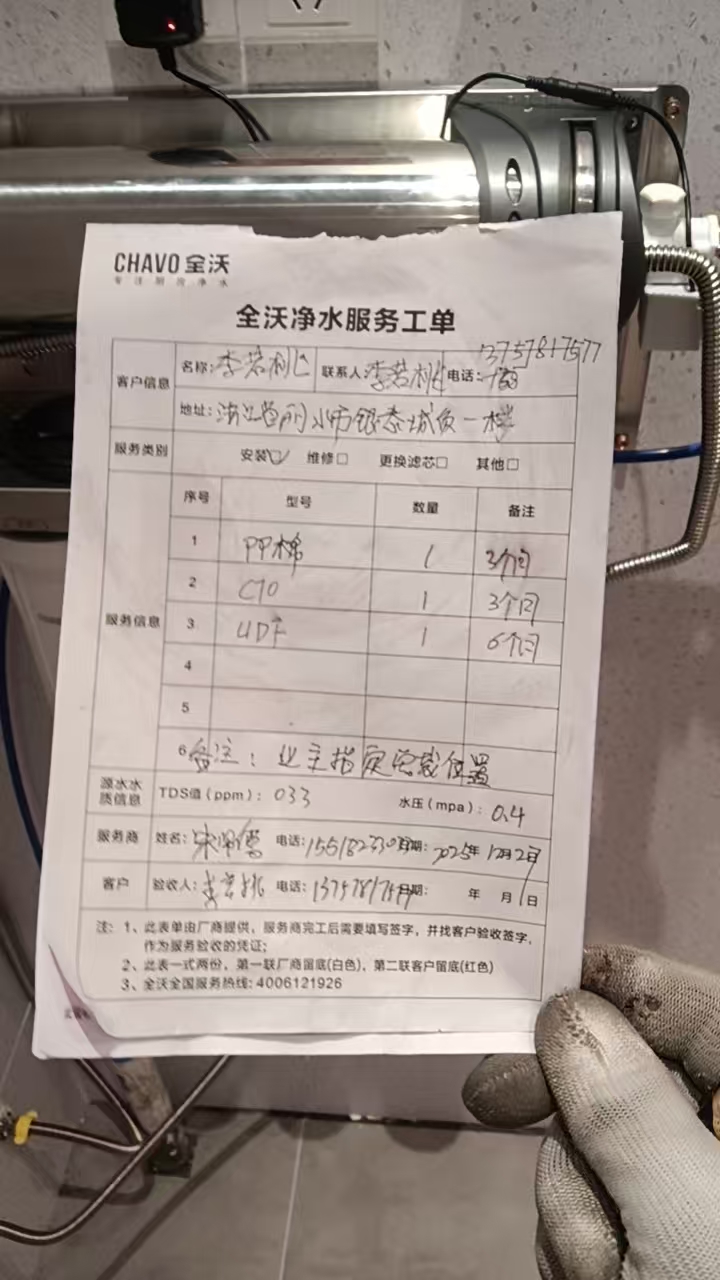 CHAVO 全沃
专注厨房净水
全沃净水服务工单
客户信息 名称: 李若桃 联系人 李若桃 电话: 13757817577
地址: 浙江省丽水市银泰城负一楼
服务类别 安装☑ 维修□ 更换滤芯□ 其他□
服务信息 序号 型号 数量 备注
1 PP棉 1 3个月
2 CTO 1 3个月
3 UDF 1 6个月
4
5
6 备注: 业主指定安装位置
源水水质信息 TDS值(ppm): 033 水压(mpa): 0.4
服务商 姓名: 电话: 日期: 2025年12月2日
客户 验收人: 李若桃 电话: 日期: 年 月 日
注: 1、此表单由厂商提供, 服务商完工后需要填写签字, 并找客户验收签字,
作为服务验收的凭证;
2、此表一式两份, 第一联厂商留底(白色), 第二联客户留底(红色)
3、全沃全国服务热线: 4006121926